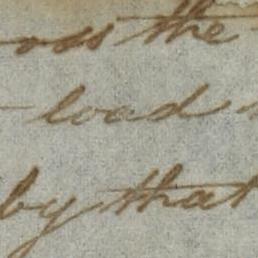 oss the
load
by that